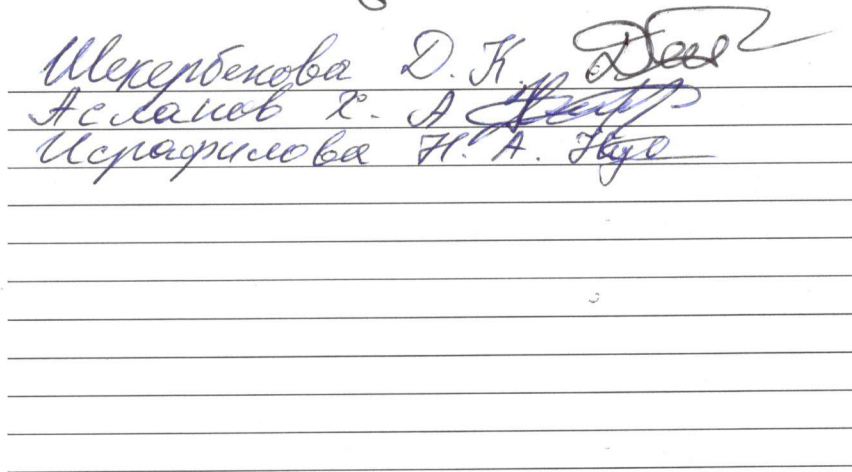 Шекербекова Д. К.
Асланов Х. А
Исрафилова Н. А.